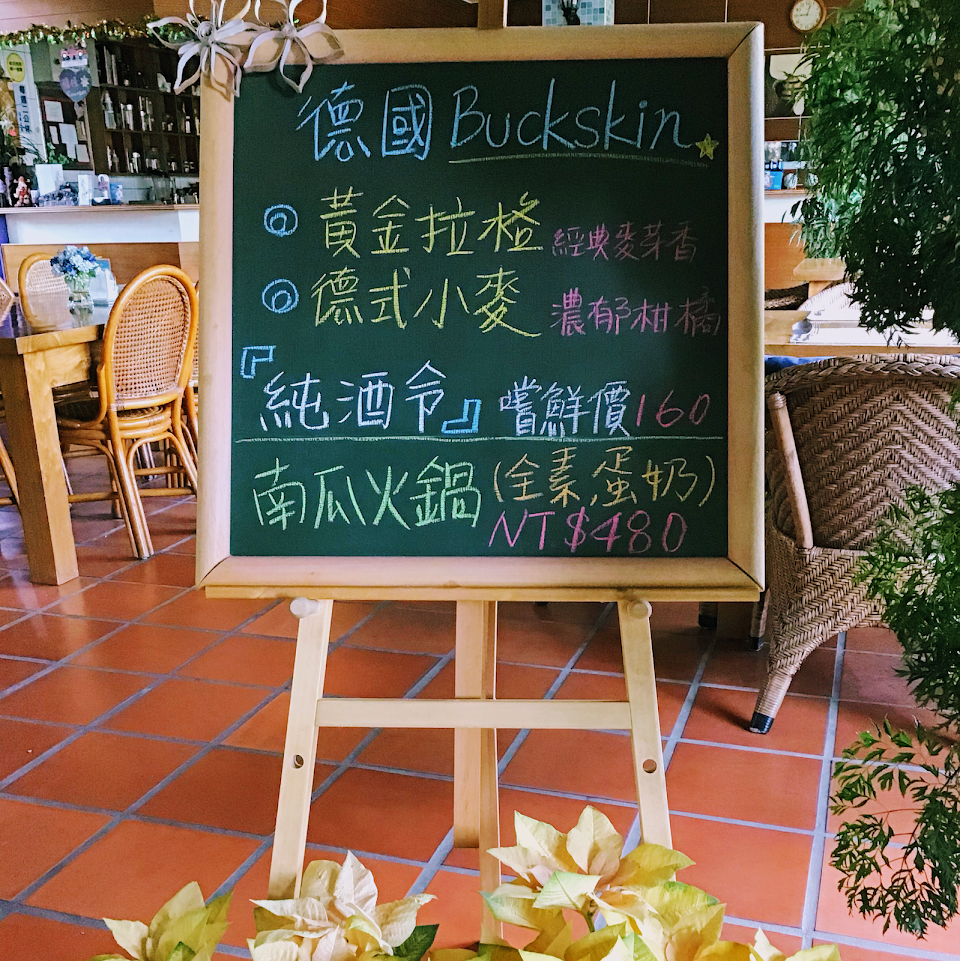 德國 Buckskin
◎ 黃金拉格 經典麥芽香
◎ 德式小麥 濃郁柑橘
『純酒令』 嚐鮮價160
南瓜火鍋 (全素,蛋奶)
NT$480